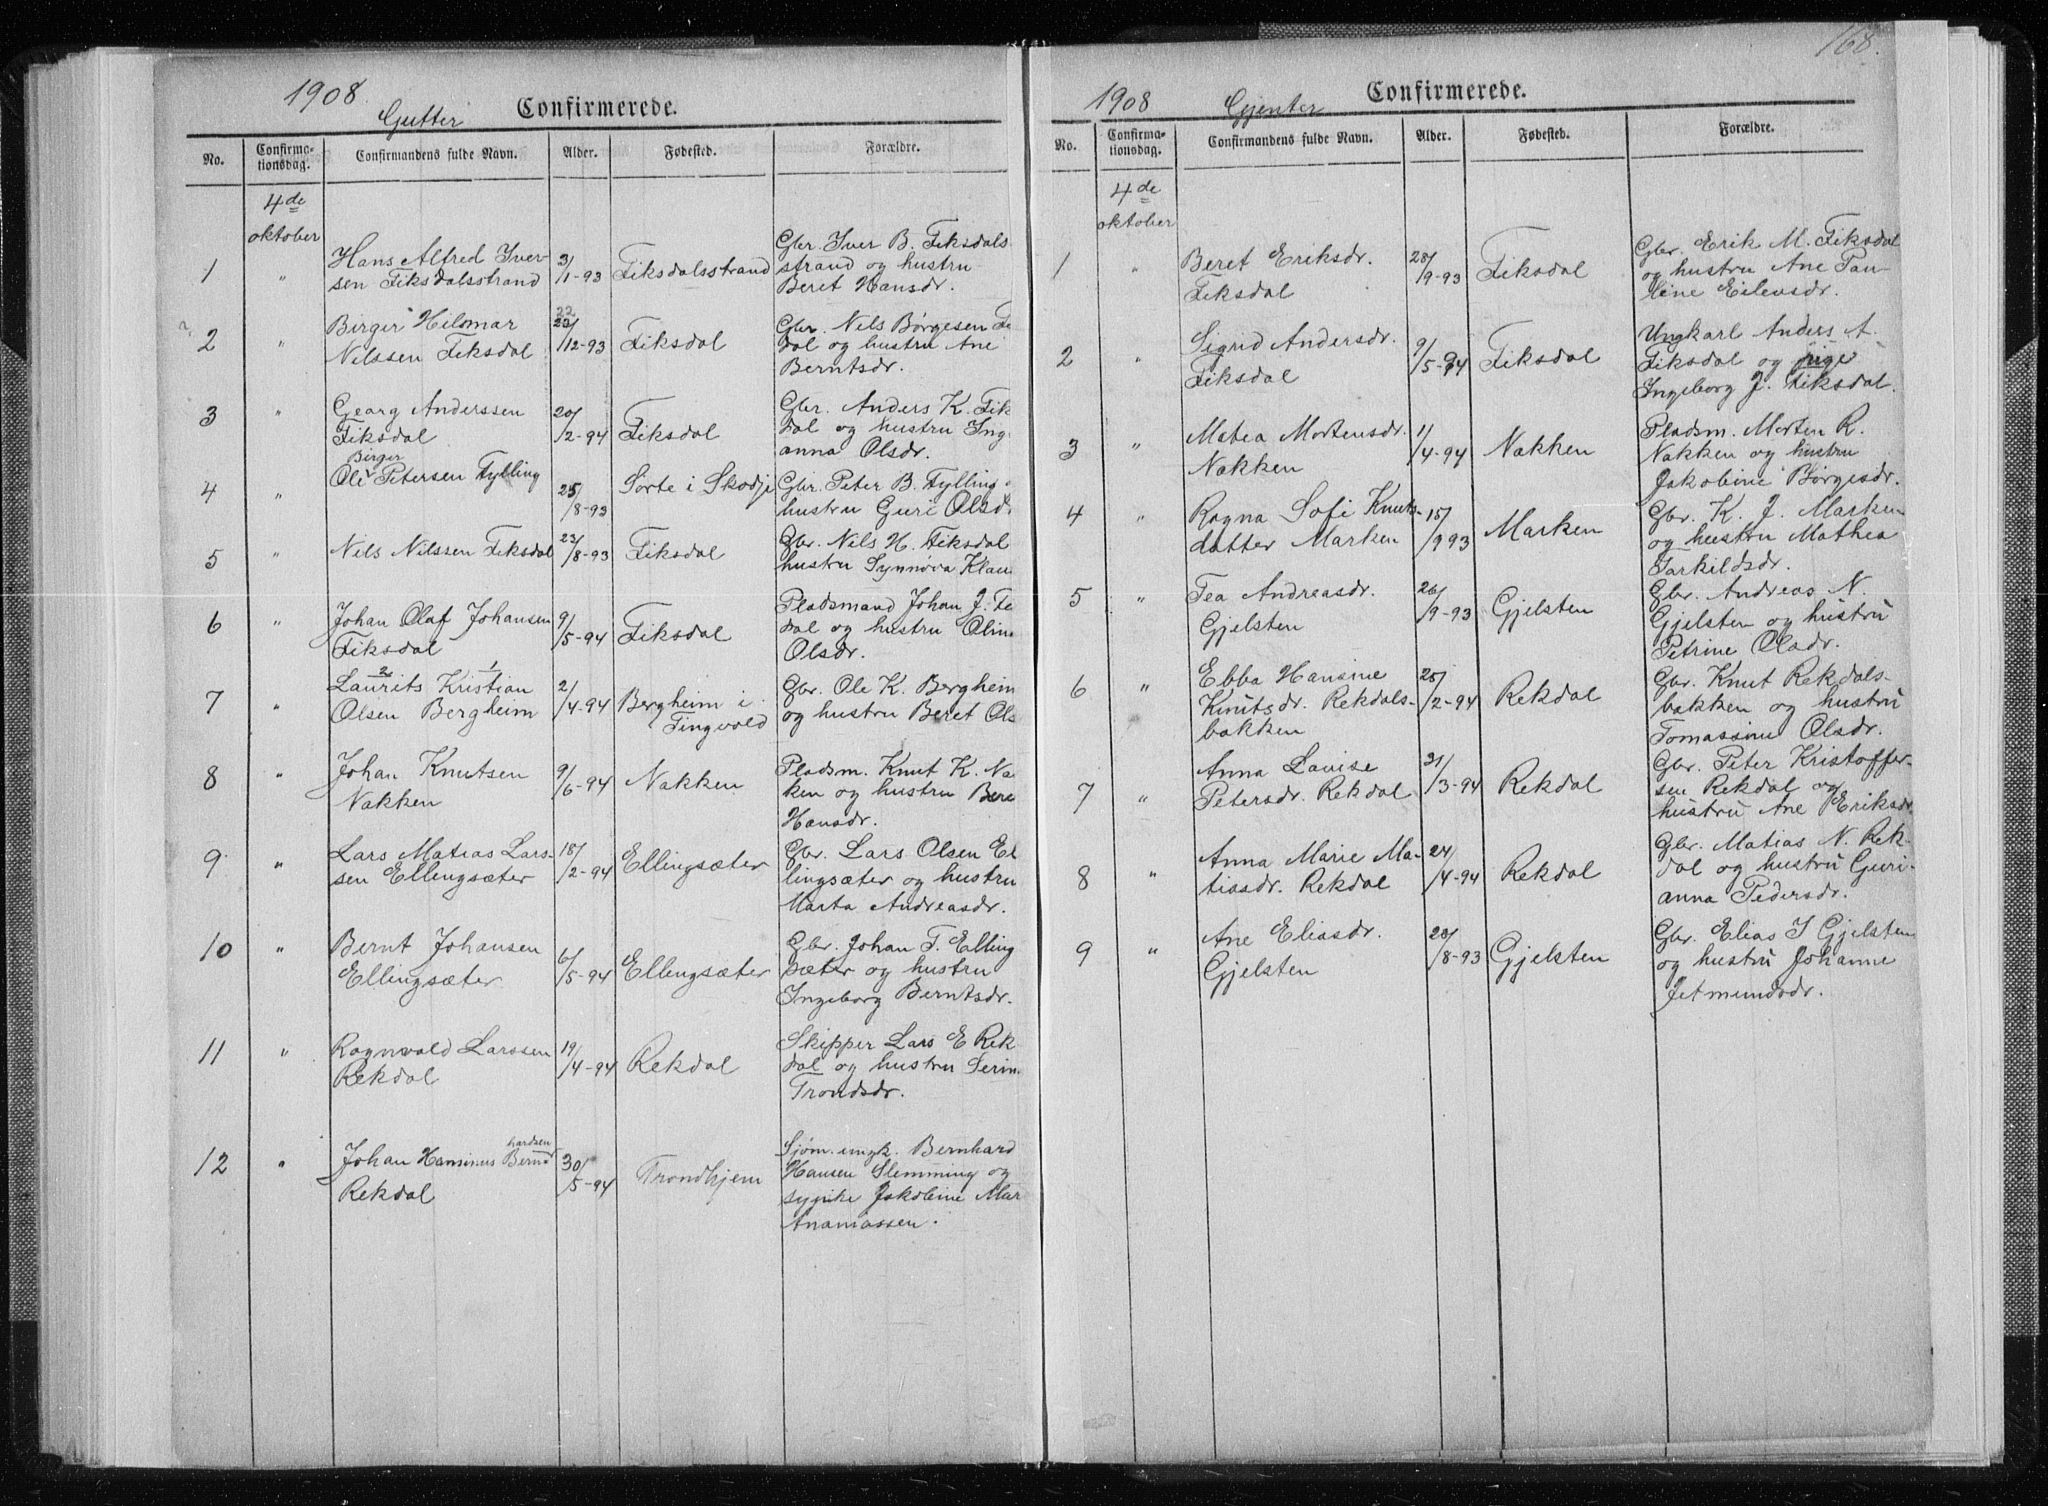 1908.
Gutter
Confirmerede.
No.
Confirma-
tionsdag.
Confirmandens fulde Navn.
Alder.
Fødested.
Forældre.
4de
oktober
1 " Hans Alfred Iver- 3/1-93 Fiksdalsstrand Gbr. Iver B. Fiksdals
sen Fiksdalsstrand strand og hustru
Beret Hansdr.
2 " Birger Hilmar 22 23/12-93 Fiksdal Gbr. Nils Børgesen Fi
Nilssen Fiksdal dal og hustru Ane
Berntsdr.
3 " Georg Anderssen 20/2-94 Fiksdal Gbr. Anders K. Fik
Fiksdal dal og hustru Ing
anna Olsdr.
Birger
4 " Ole Petersen Fylling 25/8-93 Sorte i Skodje Gbr. Peter B. Fylling o
hustru Guri Olsd
5 " Nils Nilssen Fiksdal 23/8-93 Fiksdal Gbr. Nils H. Fiksdal
hustru Synnøva Klau
6 " Johan Olaf Johansen 9/5-94 Fiksdal Pladsmand Johan J. Fi
Fiksdal dal og hustru Olin
Olsdr.
2 1
7 " Laurits Kristian 2/4-94 Bergheim i Gbr. Ole K. Bergheim
Olsen Bergheim Tingvold og hustru Beret Ols
8 " Johan Knutsen 9/6-94 Nakken Pladsm. Knut K. Na
Nakken ken og hustru Bere
Hansdr.
9. " Lars Matias Lars- 18/2-94 Ellingsæter Gbr. Lars Olsen El
sen Ellingsæter lingsæter og hustru
Marta Andreasdr.
10 " Bernt Johansen 6/5-94 Ellingsæter Gbr. Johan T. Elling
Ellingsæter sæter og hustru
Ingeborg Berntsdr.
11 " Ragnvald Larssen 19/4-94 Rekdal Skipper Lars E Rek-
Rekdal dal og hustru Serin
Trondsdr.
hardsen
12 " Johan Hansinus Bern 30/5-94 Trondhjem Sjøm. ungk. Bernhard
Rekdal Hansen Slemming og
sypike Jakobine Mar
Anamassen.
168.
1908
Gjenter
Confirmerede.
No.
Confirma-
tionsdag.
Confirmandens fulde Navn.
Alder.
Fødested.
Forældre.
4de
oktober
1 " Beret Eriksdr. 28/9-93 Fiksdal Gbr. Erik M. Fiksdal
Fiksdal og hustru Ane Pau-
line Eilevsdr.
2 " Sigrid Andersdr. 9/5-94 Fiksdal Ungkarl Anders A.
Fiksdal Fiksdal og pige
Ingeborg J. Fiksdal.
3 " Matea Mortensdr. 11/4-94 Nakken Pladsm. Morten R.
Nakken Nakken og hustru
Jakobine Børgesdr.
4 " Ragna Sofi Knuts- 15/9 93 Marken Gbr. K. J. Marken
datter Marken og hustru Mathea
Tarkildsdr.
5 " Tea Andreasdr. 26/9-93 Gjelsten Gbr. Andreas N.
Gjelsten Gjelsten og hustru
Petrine Olsdr.
6 " Ebba Hansine 25/2-94 Rekdal Gbr. Knut Rekdals-
Knutsdr. Rekdals- bakken og hustru
bakken Tomassine Olsdr.
7 " Anna Lovise 31/3-94 Rekdal Gbr. Peter Kristoffer-
Petersdr. Rekdal sen Rekdal og
hustru Ane Eriksdr.
8 " Anna Marie Ma- 24/4-94 Rekdal Gbr. Matias N. Rek-
tiasdr. Rekdal dal og hustru Guri-
anna Pedersdr.
9 " Ane Eliasdr. 28/8-93 Gjelsten Gbr. Elias I Gjelsten
Gjelsten og hustru Johanne
Jetmundsdr.